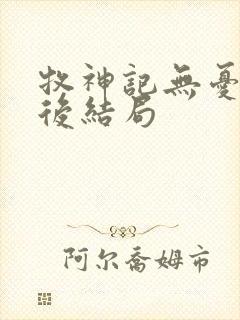 牧神記無憂
後結局
阿尔喬姆市